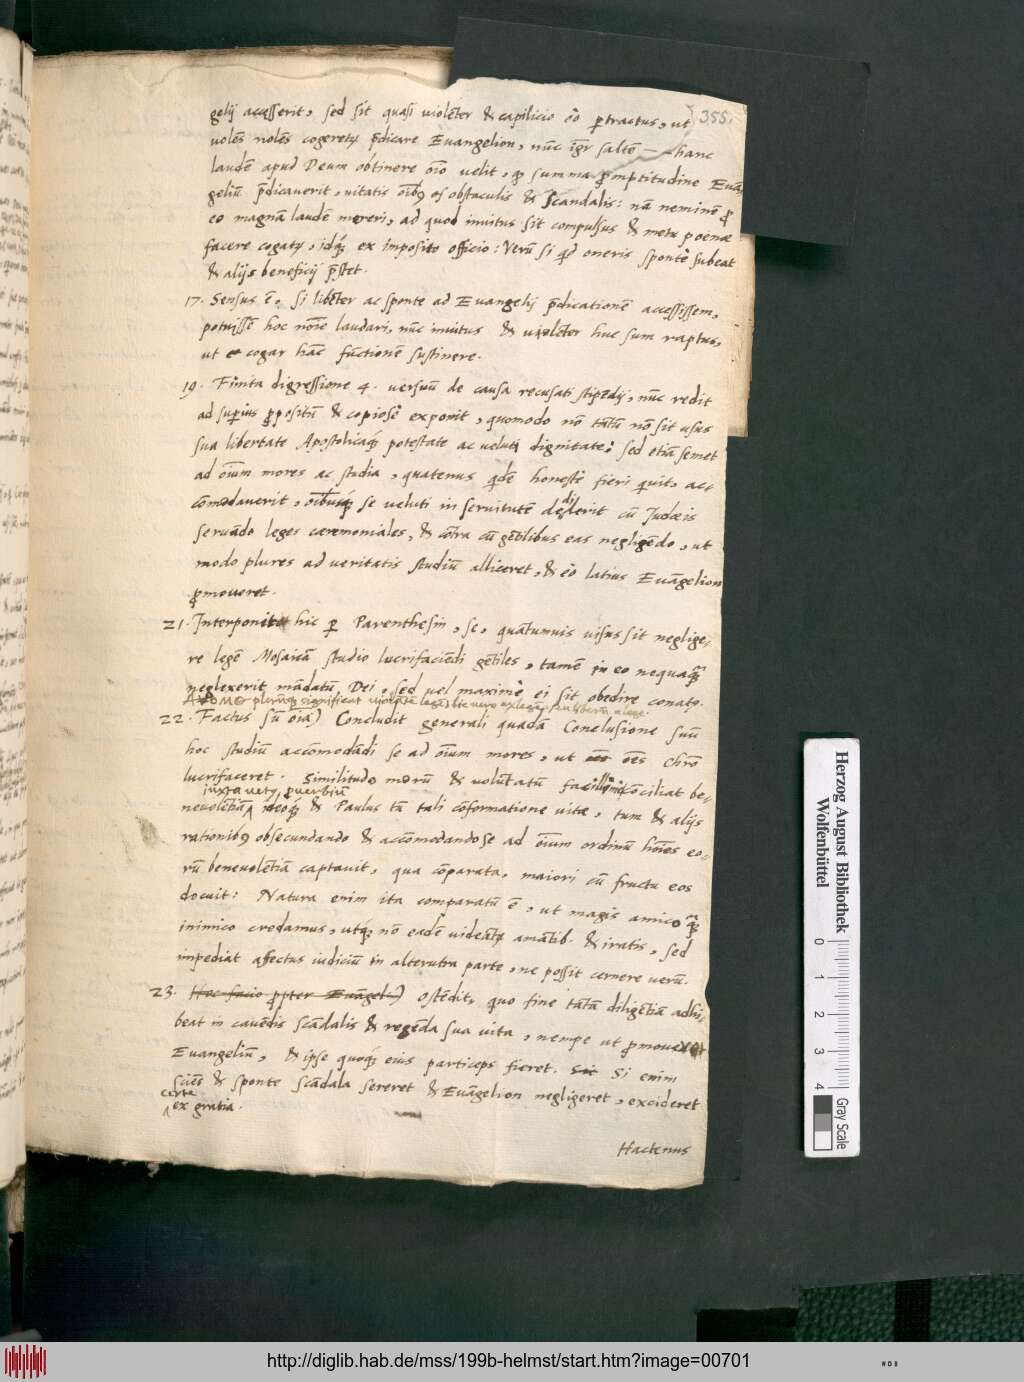 355.
gelij accesserit, sed sit quasi violēter & capilicio eò ꝑtractus, ut
volēs nolēs cogeretꝛ p̄dicare Evangelion, nūc igr̄ saltē — hanc
laudē apud Deum obtinere oīo velit, ꝙ summa ꝓmptitudine Evā
geliū p̄dicauerit, vitatis oīb9 obstaculis & Scandalis: nā neminē ꝓ
eo magnā laudē mereri, ad quod invitus sit compulsus & metu poenæ
facere cogatꝛ, idq́; ex imposito officio: Verū si qd́ oneris spontè subeat
& alijs beneficij p̄stet.
17. Sensus ē, Si libēter ac sponte ad Evangelij p̄dicationē accessissem,
potuissē hoc noīe laudari, nūc invitus & violēter huc sum raptus,
ut cogar hāc fūctionē sustinere.
19. Finita digressione 4. versuū de causa recusati stipēdij, nūc redit
ad superius ꝓpositū & copiosè exponit, quomodo nō tātū nō sit usus
sua libertate Apostolicaq́; potestate ac veluti dignitate: sed etiā semet
ad oīum mores ac studia, quatenus qdē honestè fieri quit, ac-
cōmodauerit, oībusq́; se veluti in seruitutē dediderit cū Judæis
seruādo leges cæremoniales, & cōtra cū gētilibus eas negligēdo, ut
modo plures ad veritatis studiū alliceret, & eò latius Evāgelion
ꝓmoueret.
21. Interponit hic ꝑ Parenthesin, se, quātumuis visus sit neglige-
re legē Mosaicā studio lucrifaciēdi gētiles, tamē in eo nequaq̄;
neglexerit mādatū Dei, sed vel maximè ei sit obedire conatꝰ.
22. Factus sū oīa) Concludit generali quadā Conclusione suū
hoc studiū accōmodādi se ad oīum mores, ut oēs chrō
lucrifaceret. Similitudo morū & volūtatū facillimè cōciliat be-
iuxta vetꝰ ꝓverbiū
nevolētiā ideoq́; & Paulus tū tali cōformatione vitæ, tum & alijs
rationib9 obsecundando & accōmodando se ad oīum ordinū hōīes eo-
rū benevolētiā captauit, qua cōparata, maiori cū fructu eos
docuit: Natura enim ita comparatū ē, ut magis amico q̄;
inimico credamus, utq́; nō eadē videātꝛ amātib. & iratis, sed
impediat affectus iudiciū in alterutra parte, ne possit cernere verū.
23. Hoc facio ꝓpter Evāgel.) Ostēdit, quo fine tātā diligētiā adhi-
beat in cavēdis scādalis & regēda sua vita, nempe ut ꝓmoueret
Evangeliū, & ipse quoq́; eius particeps fieret. Si enim
sciēs & sponte scādala sereret & Evāgelion negligeret, excideret
certe
ex gratia.
Hactenus
Herzog August Bibliothek
Wolfenbüttel
0 1 2 3 4
Gray Scale
http://diglib.hab.de/mss/199b-helmst/start.htm?image=00701